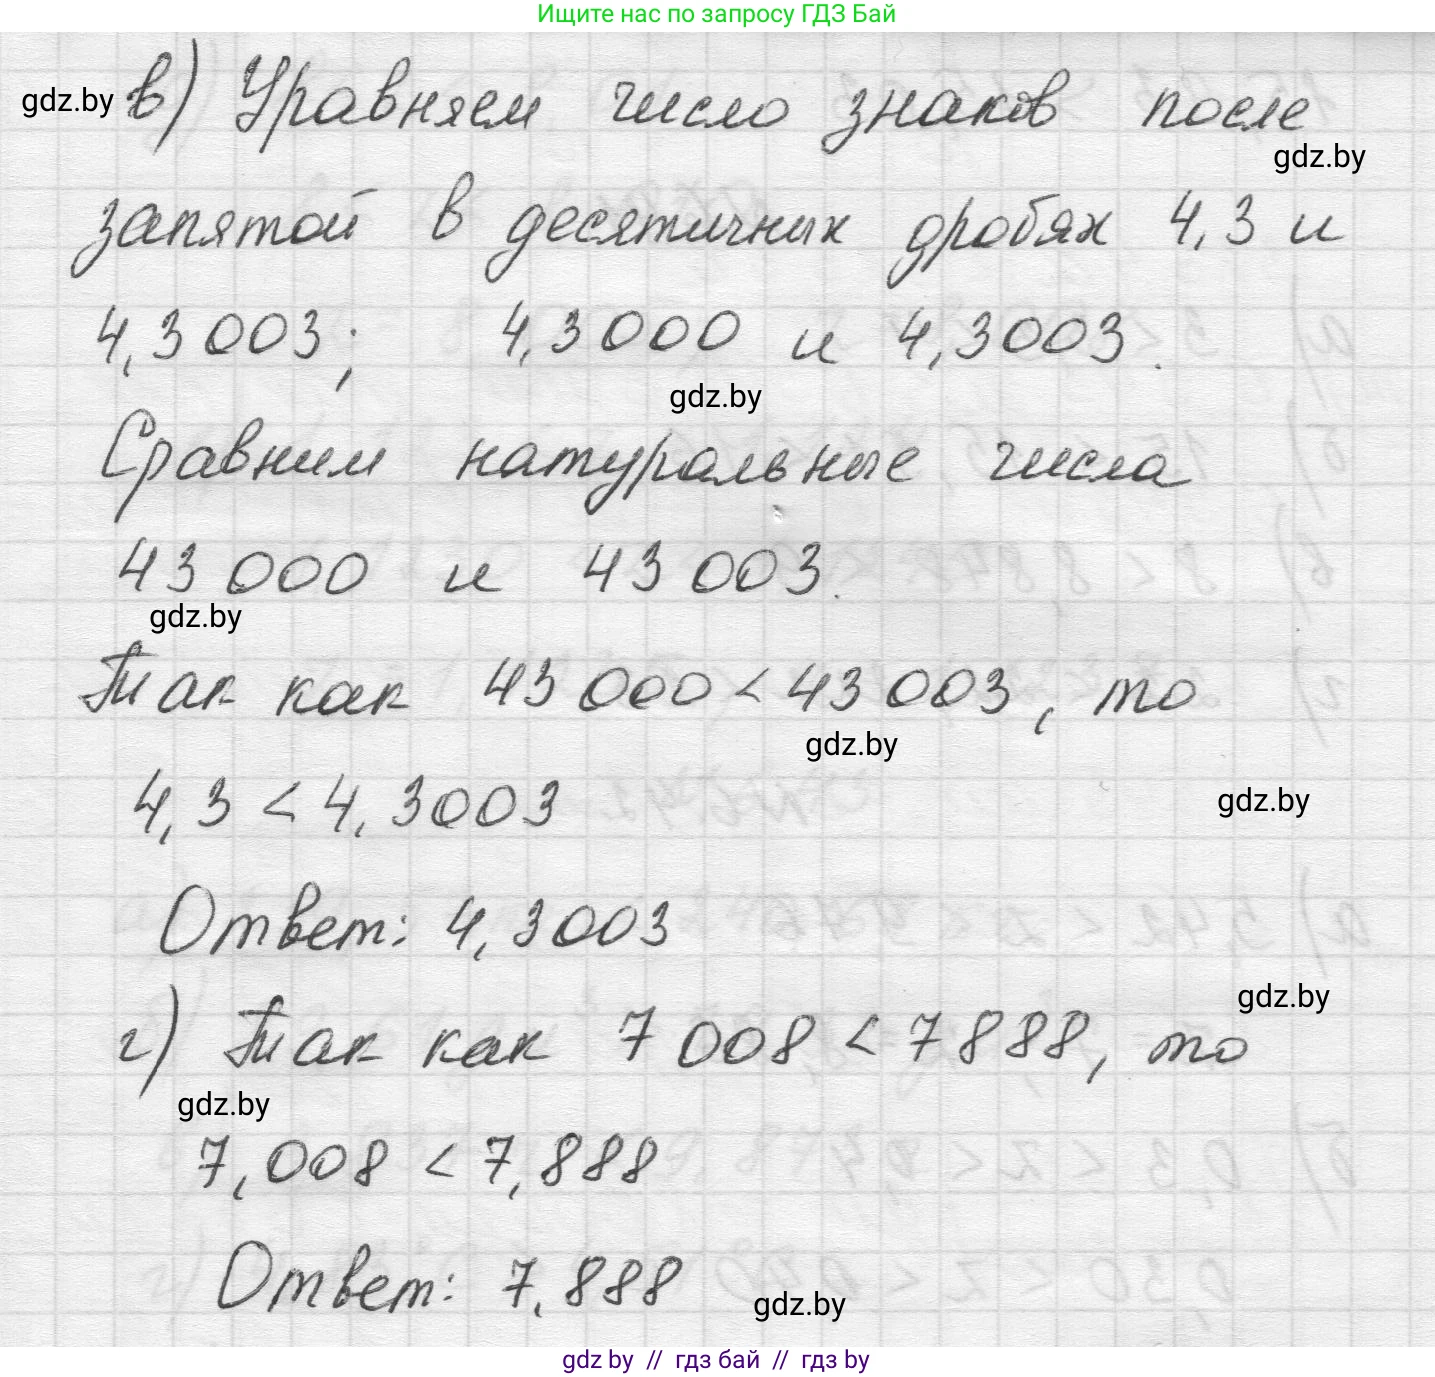 Ищите нас по запросу ГДЗ Бай
gdz.by в) Уравняем число знаков после
gdz.by
запятой в десятичных дробях 4,3 и
4,3003; 4,3000 и 4,3003.
gdz.by
Сравним натуральные числа
43 000 и 43 003.
gdz.by
Так как 43 000 < 43 003, то
gdz.by
4,3 < 4,3003
gdz.by
Ответ: 4,3003
gdz.by
г) Так как 7 008 < 7 888, то
gdz.by
7,008 < 7,888
Ответ: 7,888
gdz.by
gdz by // гдз бай // гдз by